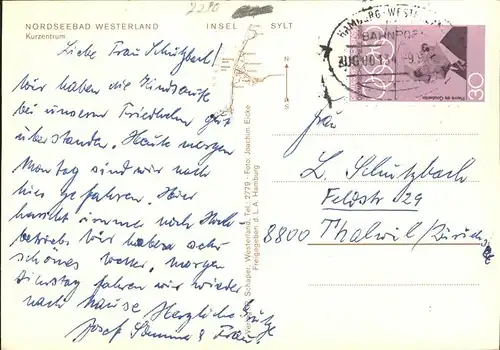 2280
NORDSEEBAD WESTERLAND INSEL SYLT
Kurzentrum
Liebe Frau Schutzbach!
Wir haben die
bei unserer Friedhelm gut
überstanden. Heute morgen
Montag sind wir nach
hier gefahren. Hier
herrscht immer noch Hoch
betrieb. Wir haben sehr
schönes Wetter, morgen
Dienstag fahren wir wieder
nach Hause. Herzliche Grüße
Josef & Frau
N
S
Schaper, Westerland, Tel.: 2779 - Foto: Joachim Eicke
Freigegeben d. L.A. Hamburg
HAMBURG-WESTERLAND
BAHNPOST
ZUG
30
Frau
L. Schutzbach
Feldstr 29
8800 Thalwil/Zürich